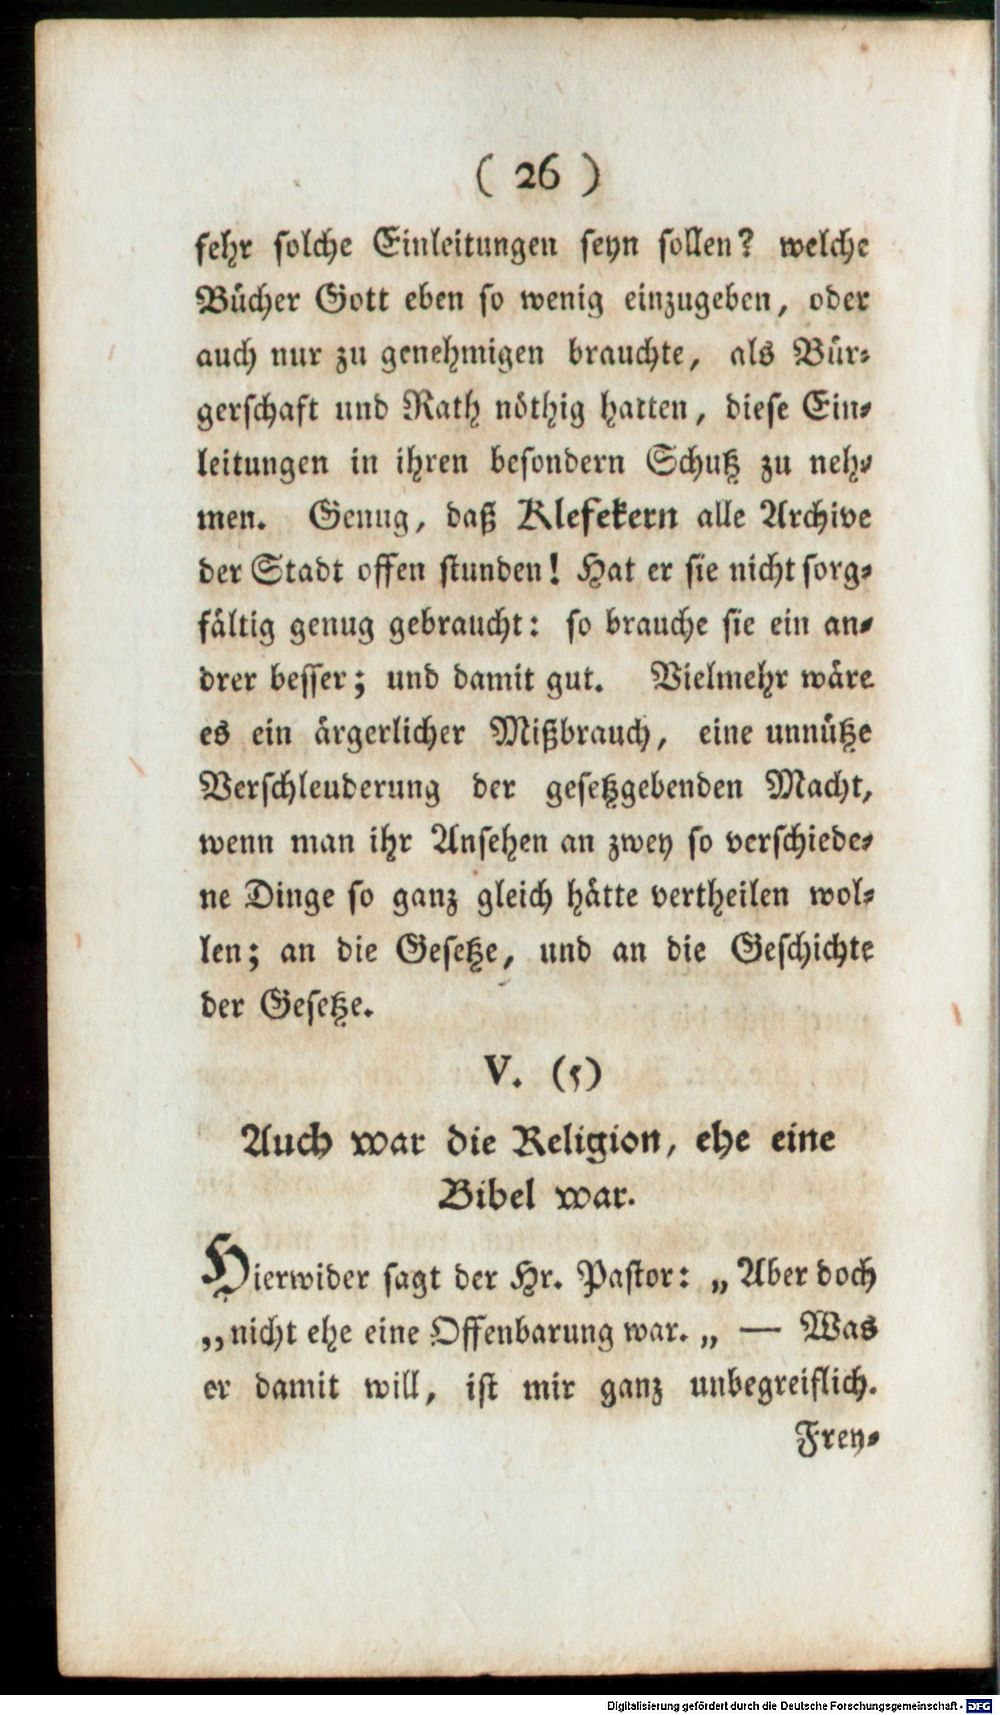 ( 26 )
sehr solche Einleitungen seyn sollen? welche
Bücher Gott eben so wenig einzugeben, oder
auch nur zu genehmigen brauchte, als Bür-
gerschaft und Rath nöthig hatten, diese Ein-
leitungen in ihren besondern Schutz zu neh-
men. Genug, daß Klefekern alle Archive
der Stadt offen stunden! Hat er sie nicht sorg-
fältig genug gebraucht: so brauche sie ein an-
drer besser; und damit gut. Vielmehr wäre
es ein ärgerlicher Mißbrauch, eine unnütze
Verschleuderung der gesetzgebenden Macht,
wenn man ihr Ansehen an zwey so verschiede-
ne Dinge so ganz gleich hätte vertheilen wol-
len; an die Gesetze, und an die Geschichte
der Gesetze.
V. (5)
Auch war die Religion, ehe eine
Bibel war.
Hierwider sagt der Hr. Pastor: „Aber doch
„nicht ehe eine Offenbarung war.„ — Was
er damit will, ist mir ganz unbegreiflich.
Frey-
Digitalisierung gefördert durch die Deutsche Forschungsgemeinschaft - DFG